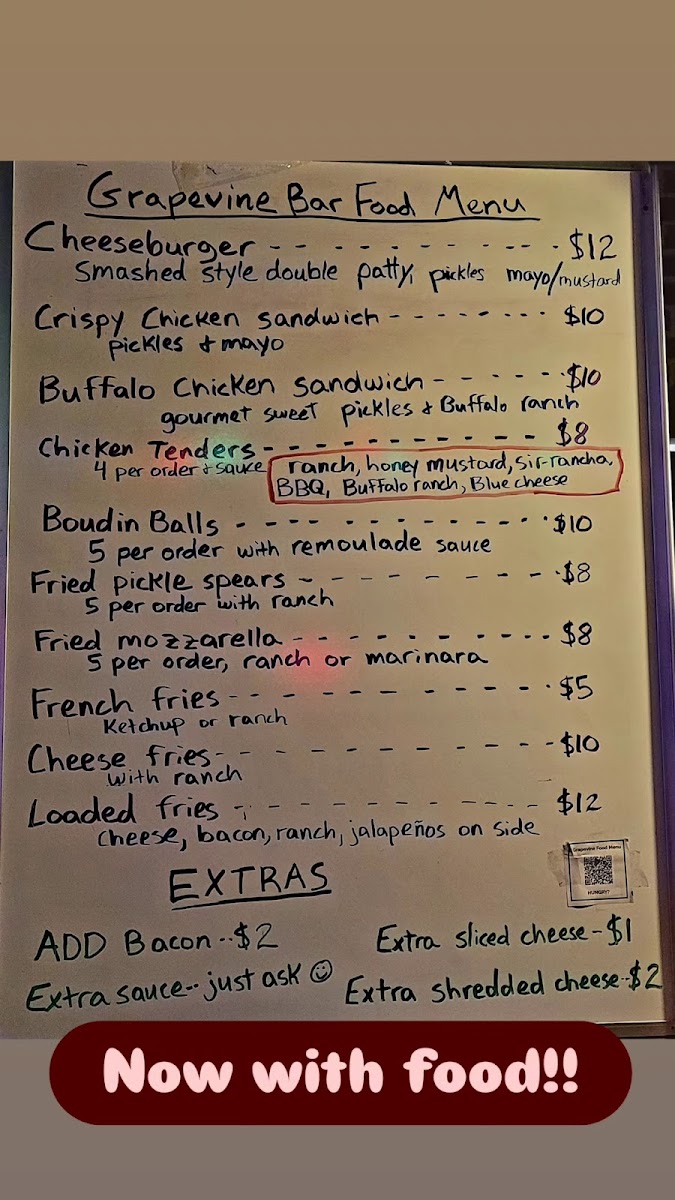 Grapevine Bar Food Menu
Cheeseburger -- - - - - - --- - $12
Smashed style double patty, pickles mayo/mustard
Crispy Chicken sandwich - - - - --- - - $10
pickles & mayo
Buffalo Chicken sandwich - - - - - - $10
gourmet sweet pickles & Buffalo ranch
Chicken Tenders - - - - - - - - - - - $8
4 per order + sauce ranch, honey mustard, sir-rancha,
BBQ, Buffalo ranch, Blue cheese
Boudin Balls - - - - - - - - - - - - $10
5 per order with remoulade sauce
Fried pickle spears - - - - - - - - $8
5 per order with ranch
Fried mozzarella - - - - - - - - - - - $8
5 per order, ranch or marinara
French fries - - - - - - - - - - - $5
Ketchup or ranch
Cheese fries - - - - - - - - - - - $10
with ranch
Loaded fries - - - - - - - - - - - $12
cheese, bacon, ranch, jalapeños on side
Grapevine Food Menu
HUNGRY?
EXTRAS
ADD Bacon--$2 Extra sliced cheese-$1
Extra sauce-- just ask ☺ Extra shredded cheese--$2
Now with food!!